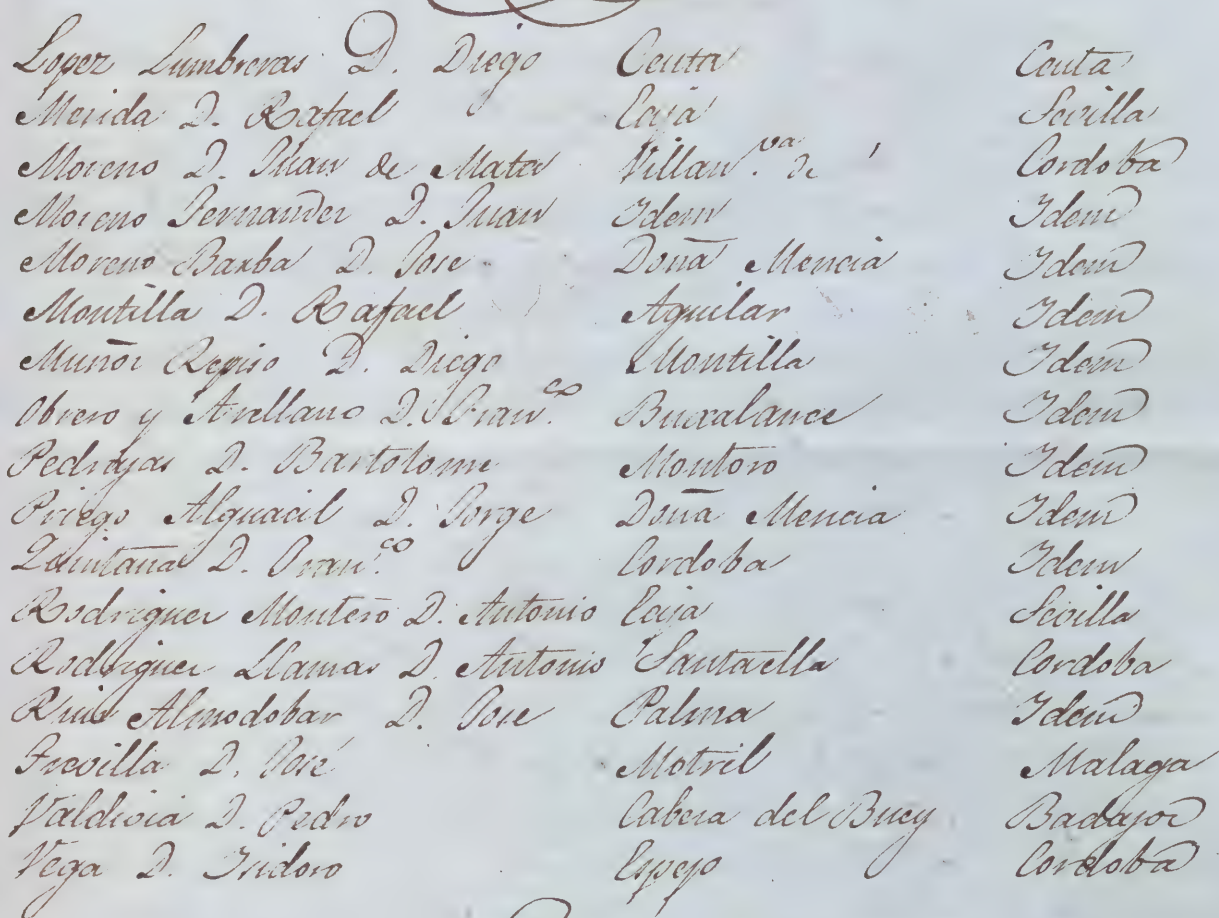 Lopez Lumbreras D. Diego Ceuta Ceuta
Merida D. Rafael Ecija Sevilla
Moreno D. Juan de Mata Villan.va de Cordoba
Moreno Fernandez D. Juan Idem Idem
Moreno Barba D. Jose Doña Mencia Idem
Montilla D. Rafael Aguilar Idem
Muñoz Repiso D. Diego Montilla Idem
Obrero y Arellano D. Fran.co Buxalance Idem
Pedrajas D. Bartolome Montoro Idem
Priego Alguacil D. Jorge Doña Mencia Idem
Quintana D. Fran.co Cordoba Idem
Rodriguez Montero D. Antonio Ecija Sevilla
Rodriguez Llamas D. Antonio Santaella Cordoba
Ruiz Almodobar D. Jose Palma Idem
Trevilla D. José Motril Malaga
Valdivia D. Pedro Cabeza del Buey Badajoz
Vega D. Isidoro Espejo Cordoba